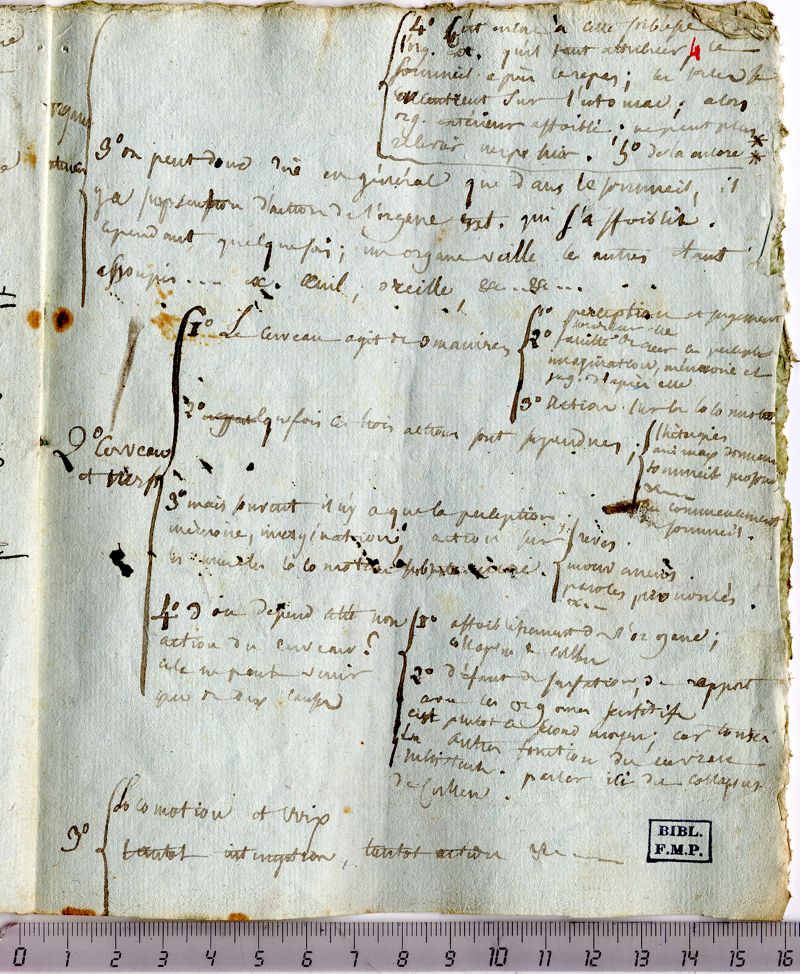 4° C'est même à cette
l'org. ext. qu'il faut attribuer le
4
sommeil après le repas; les forces se
concentrent sur l'estomac; alors
org. extérieur affoibli. ne peut plus
5° de là encore
organes
3° on peut donc dire en général que dans le sommeil, il
y a suspension d'action de l'organe ext. qui s'affoiblit.
cependant quelquefois; un organe veille les autres étant
assoupis... œil, oreille &c... &c...
1° Le cerveau agit de 3 manières
1° perception et jugement
2° faculté de créer
imagination, mémoire et
jug. d'après elle
3° action sur la locomotion
2° quelquefois ces trois actions sont suspendues;
léthargies
sommeil profond
au commencement
du sommeil.
2° Cerveau
et nerfs
3° mais souvent il n'y a que la perception.
mémoire, imagination action sur
les muscles locomoteurs
rêves.
mouvemens.
paroles prononcées
4° D'où dépend cette non
action du cerveau?
cela ne peut venir
que de deux causes
1° affoiblissement de l'organe;
collapsus de Cullen
2° défaut de sensations, de rapport
avec les organes sensitifs
c'est plutôt le second moyen; car
les autres fonctions du cerveau
subsistent. parler ici du collapsus
de Cullen.
3° Locomotion et voix
tantôt interruption, tantôt action &c
BIBL.
F.M.P.
0 1 2 3 4 5 6 7 8 9 10 11 12 13 14 15 16